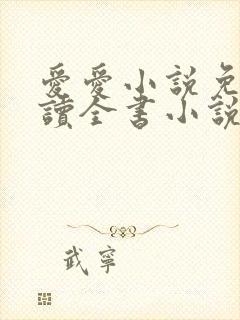 愛愛小說免
讀全書小說
武寧